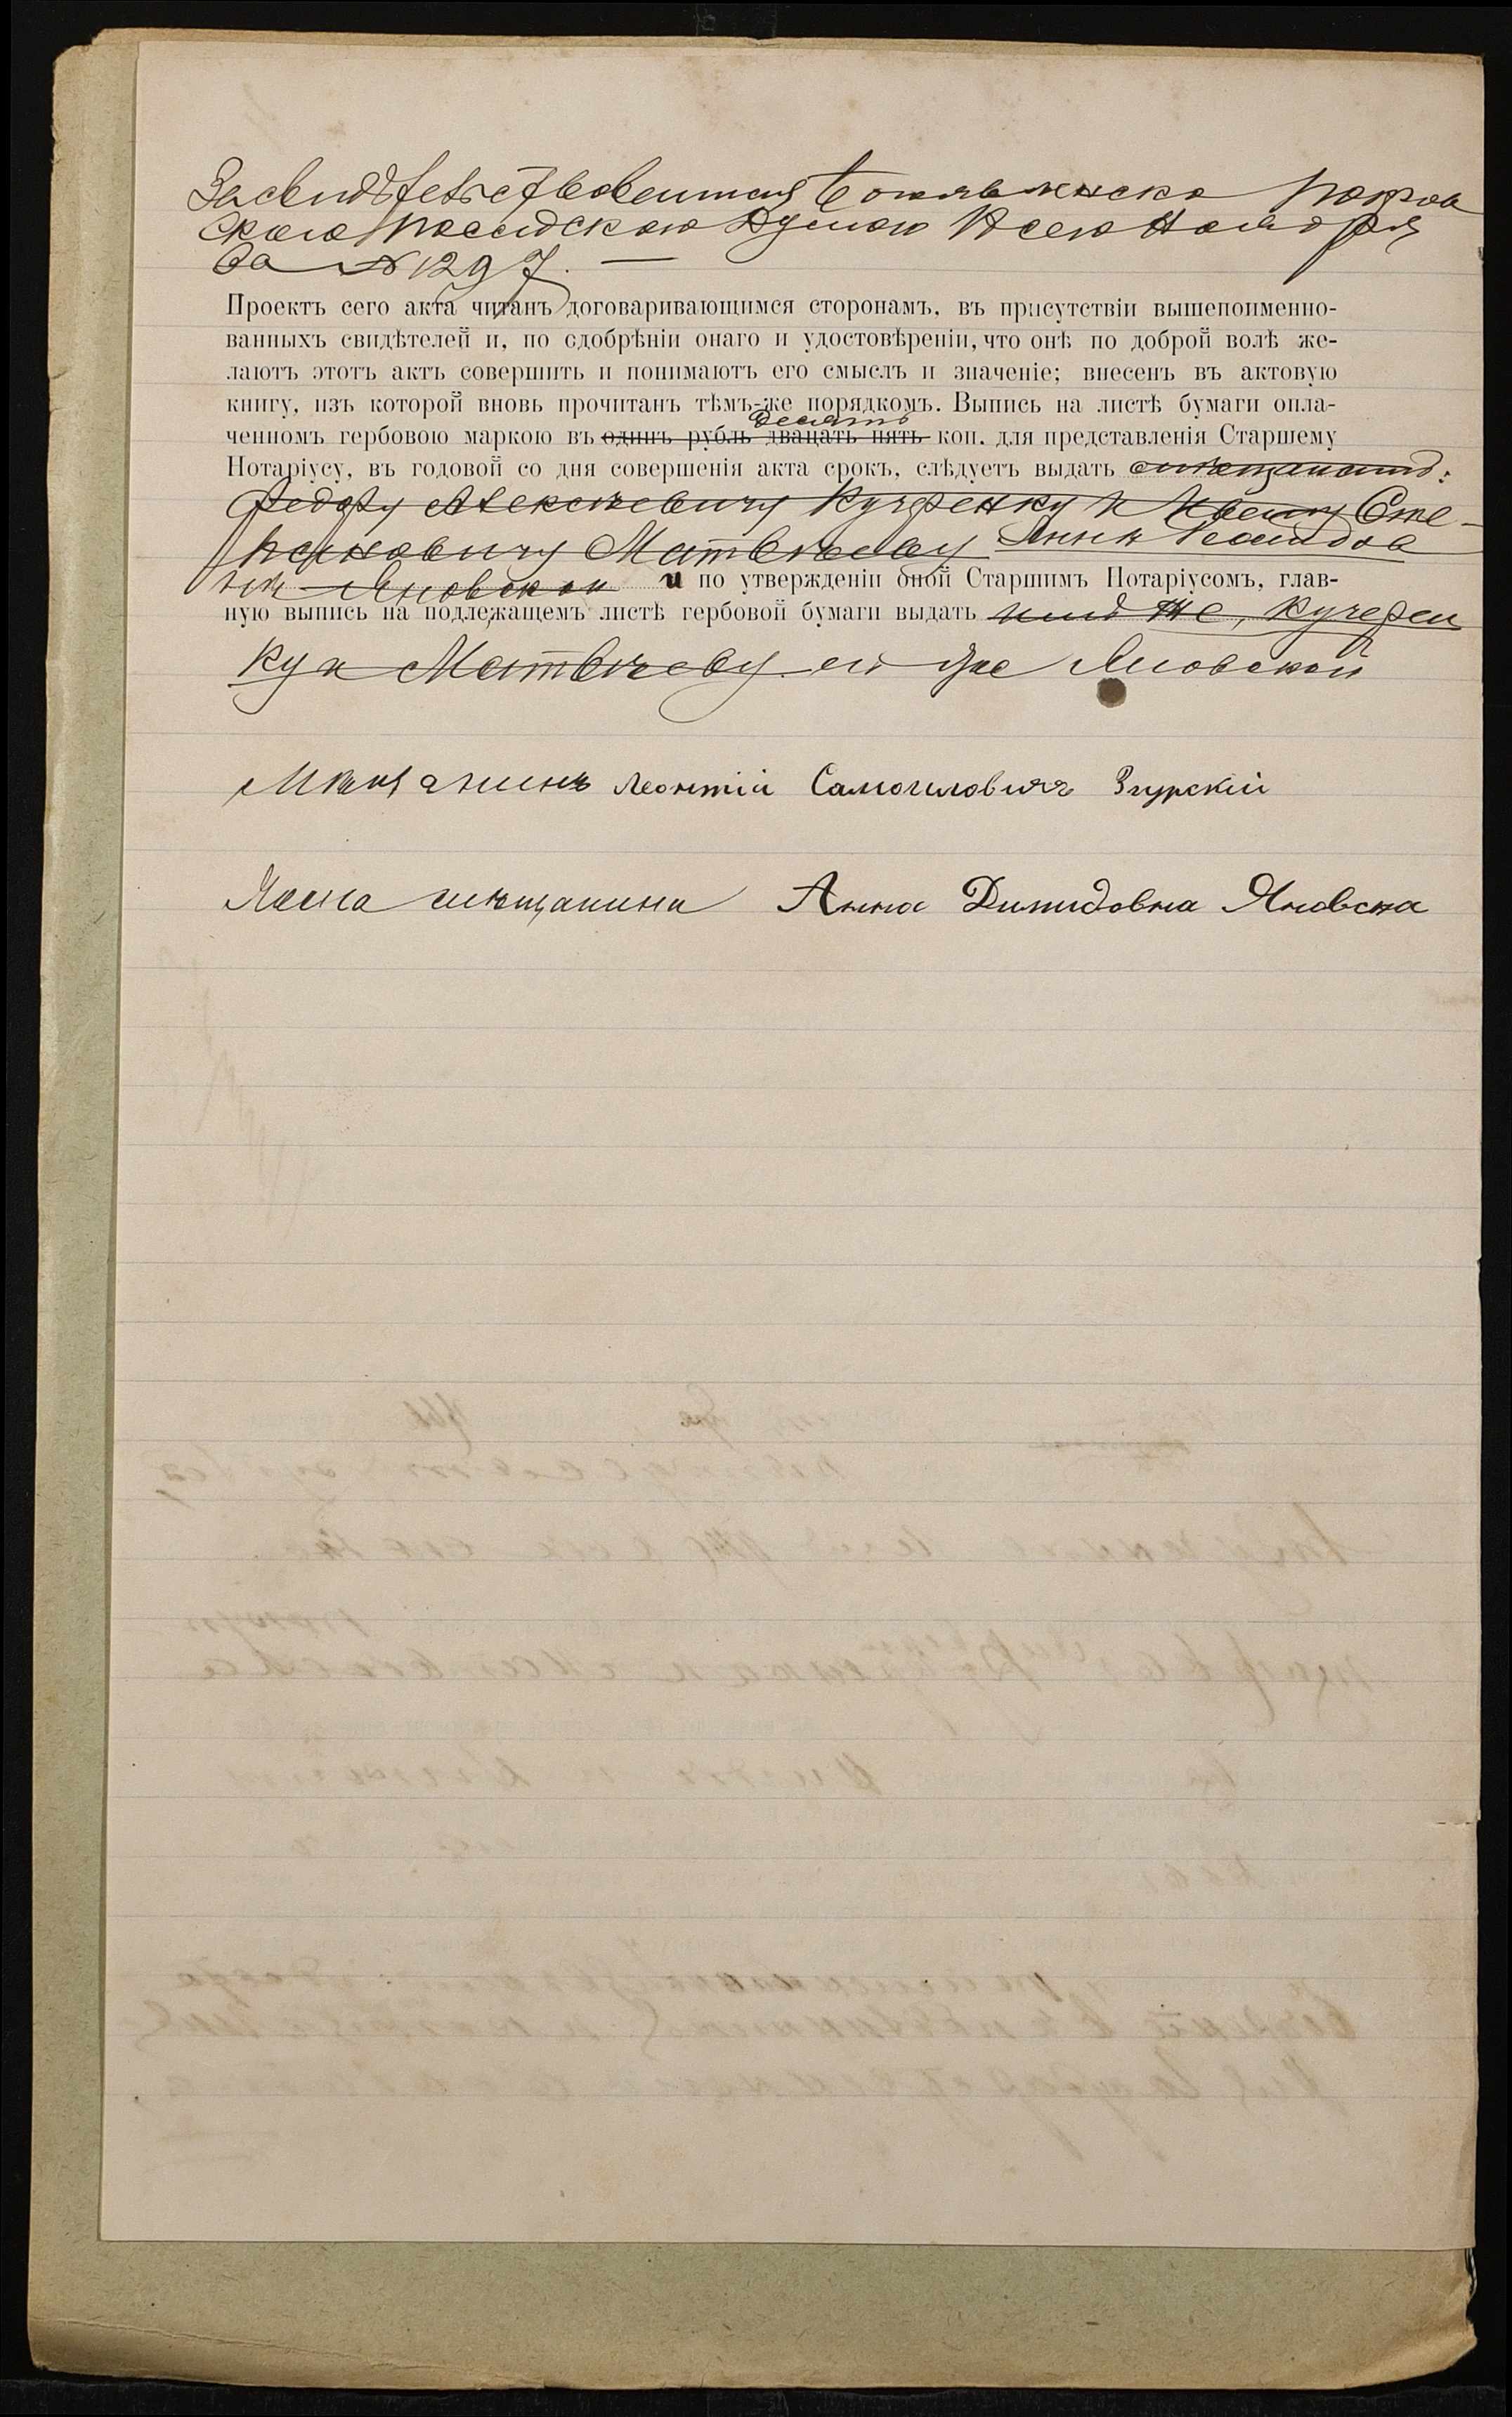 Засвидѣтельствованная
скою посадскою Думою Ноября
за № 1297. —
Проектъ сего акта читанъ договаривающимся сторонамъ, въ присутствіи вышепоименно-
ванныхъ свидѣтелей и, по одобрѣніи онаго и удостовѣреніи, что онѣ по доброй волѣ же-
лаютъ этотъ актъ совершить и понимаютъ его смыслъ и значеніе; внесенъ въ актовую
книгу, изъ которой вновь прочитанъ тѣмъ-же порядкомъ. Выпись на листѣ бумаги опла-
десять
ченномъ гербовою маркою въ одинъ рубль двацать пять коп. для представленія Старшему
Нотаріусу, въ годовой со дня совершенія акта срокъ, слѣдуетъ выдать мѣщанамъ:
Федору Алексѣевичу Кучеренку и Ивану Сте-
пановичу Матвѣеву Аннѣ Демидов
нѣ Яновской и по утвержденіи оной Старшимъ Нотаріусомъ, глав-
ную выпись на подлежащемъ листѣ гербовой бумаги выдать имъ же, Кучерен
ку и Матвѣеву ей же Яновской
Мѣщанинъ Леонтій Самоиловичъ Згурскій
Жена мѣщанина Анна Димидовна Яновска